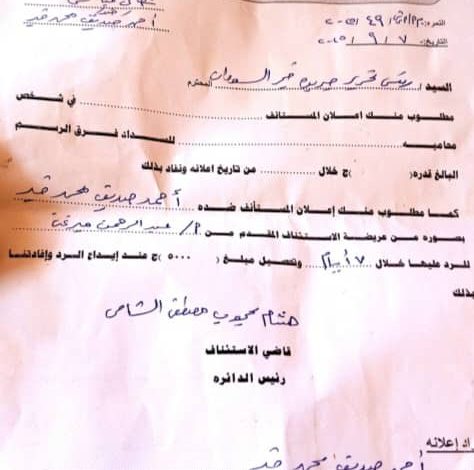 أحمد صديق محمد خير
النمرة: م أ/أ س م/٤٩/٢٠٢٥
التاريخ: ٧/٩/٢٠٢٥
السيد/ رئيس تحرير جريدة فجر السودان المحترم
مطلوب منك إعلان المستأنف .................... في شخص
محاميه .................... للسداد فرق الرسم
البالغ قدره( )ج خلال .......... من تاريخ اعلانه ونفاد بذلك
كما مطلوب منك إعلان المستأنف ضده أحمد صديق محمد خير
بصوره من عريضة الاستئناف المقدم من أ/ عبد الرحمن ميرغني
للرد عليها خلال ٧ أيام وتحصيل مبلغ (٥٠٠٠)ج عند إيداع الرد وإفادتنا
بذلك
هشام محجوب مصطفى الشامي
قاضي الاستئناف
رئيس الدائره
اد إعلانه
أحمد صديق محمد خير